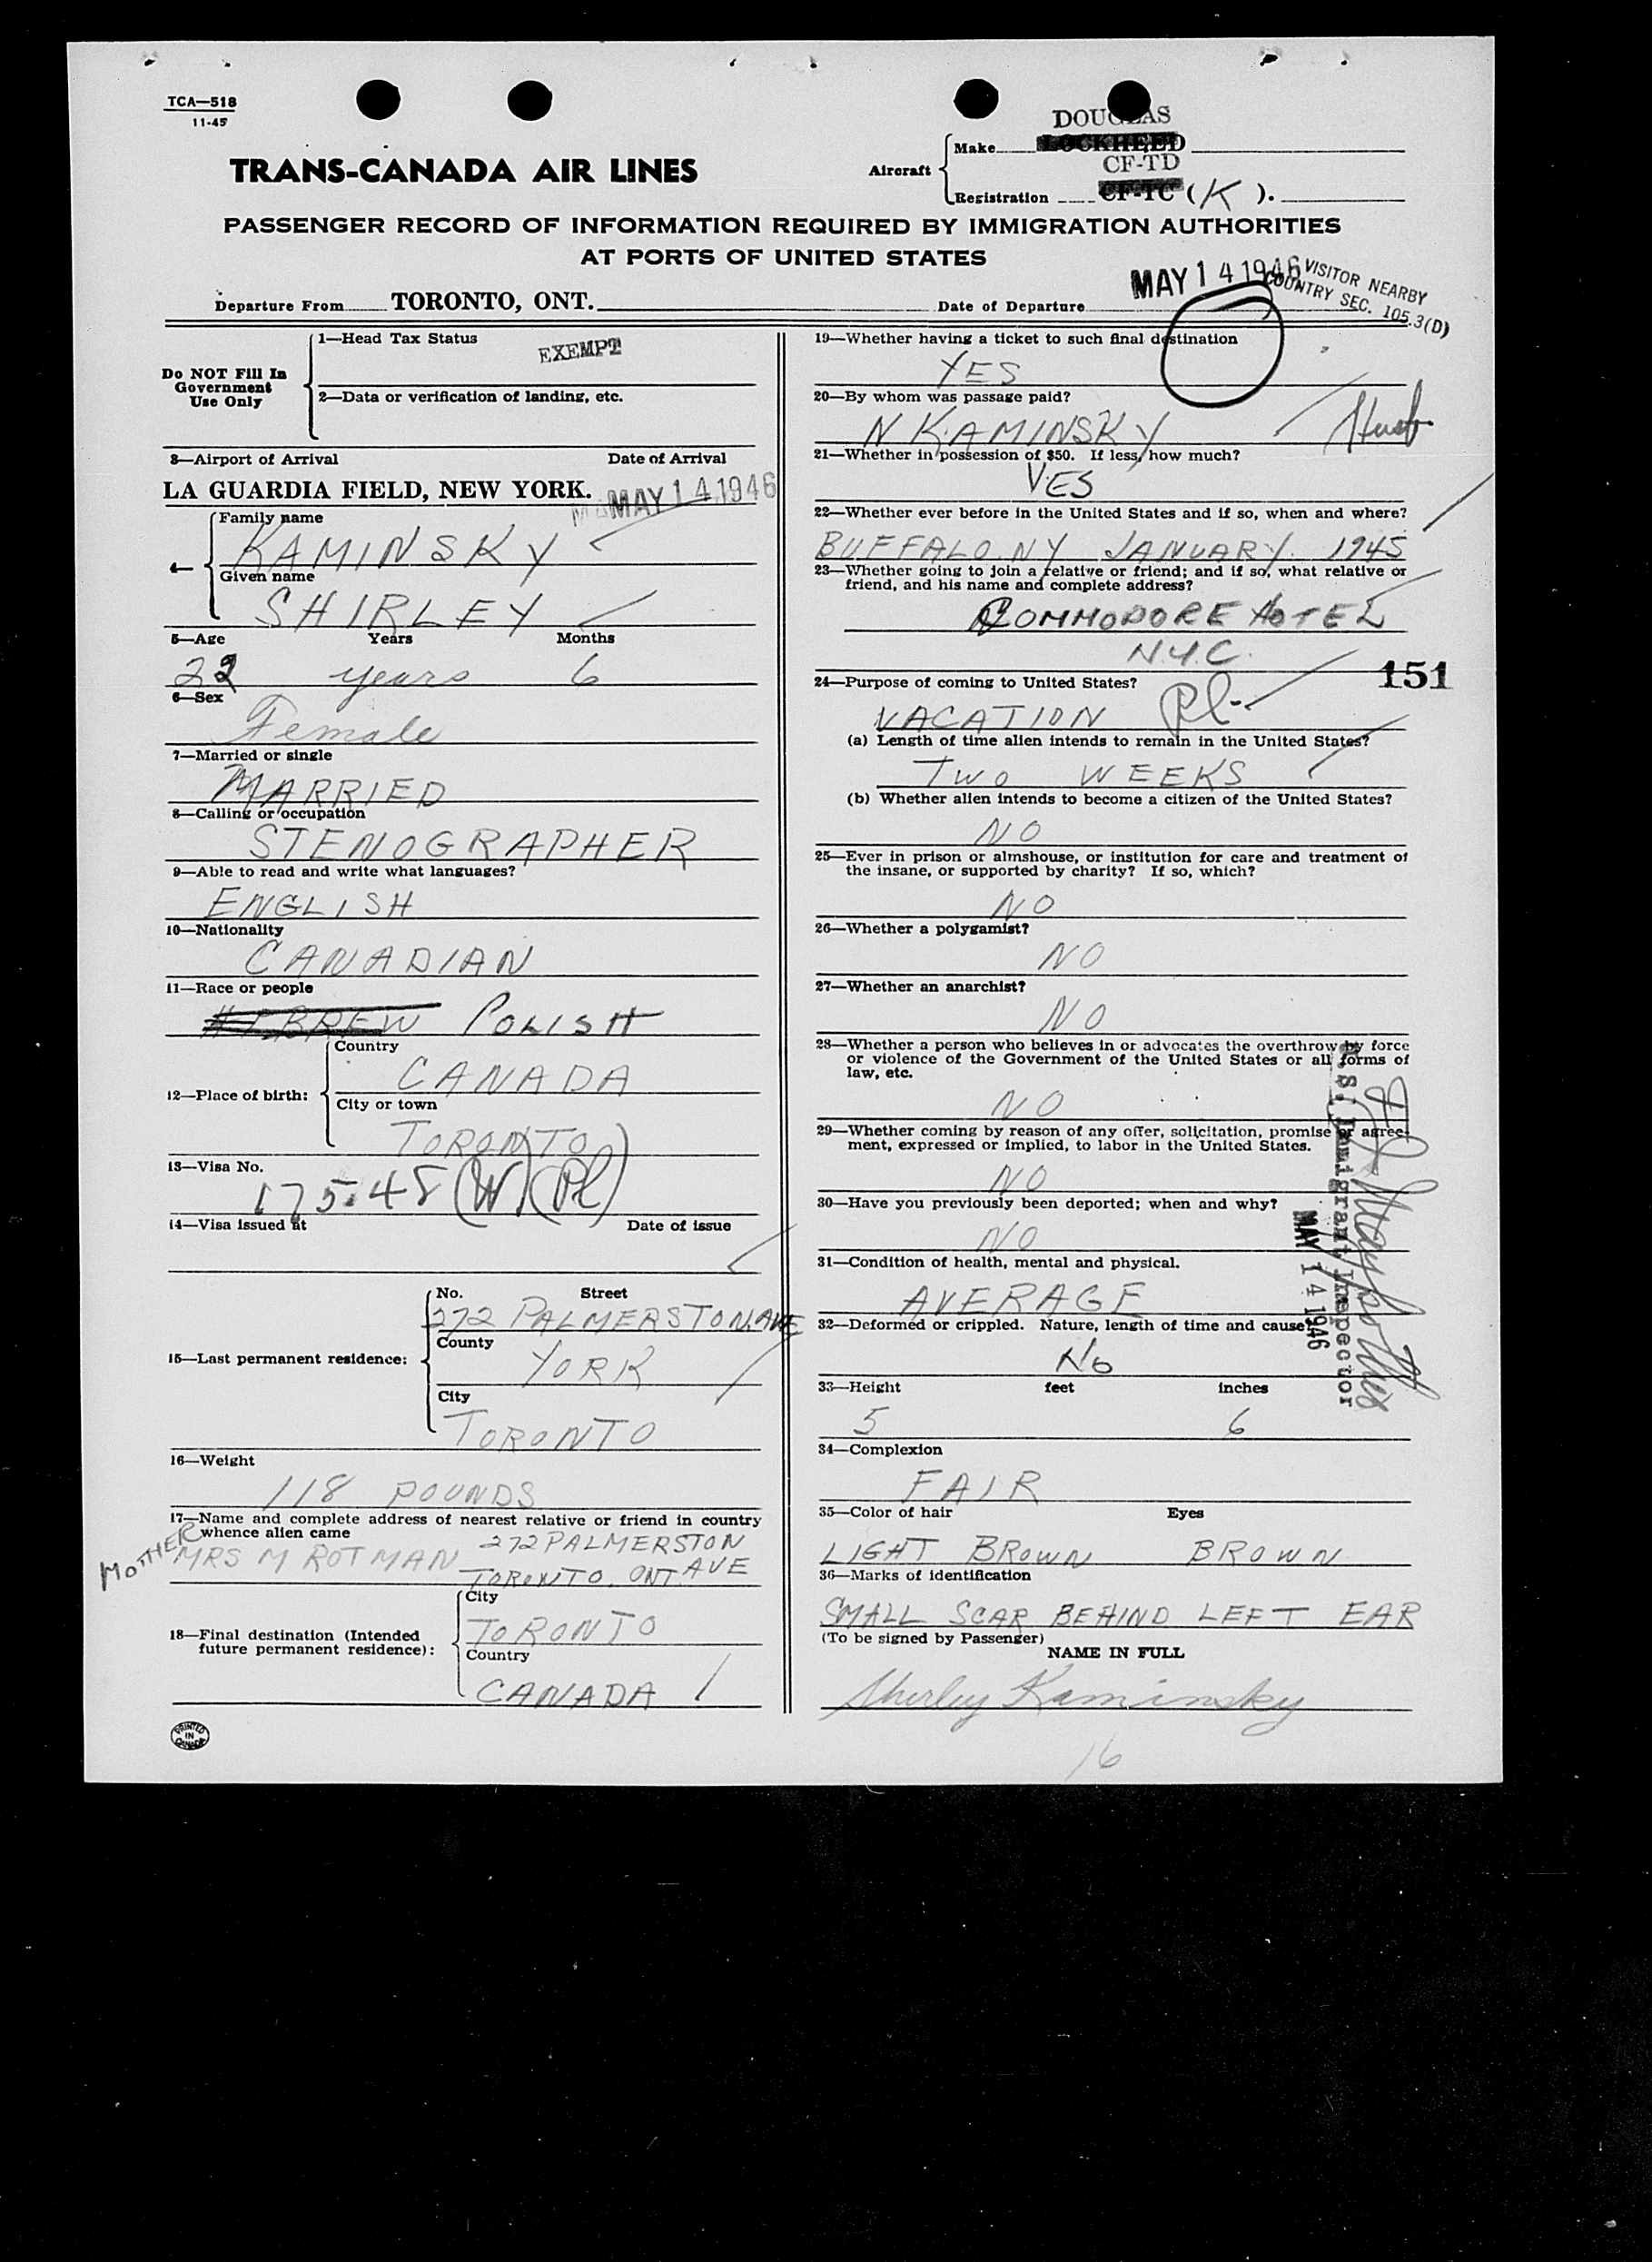 TCA—518
11-45
TRANS-CANADA AIR LINES
Aircraft
Make
DOUGLAS
LOCKHEED
CF-TD
Registration CF-TC (K).
PASSENGER RECORD OF INFORMATION REQUIRED BY IMMIGRATION AUTHORITIES
AT PORTS OF UNITED STATES
Departure From TORONTO, ONT.
Date of Departure MAY 14 1946
VISITOR NEARBY
COUNTRY SEC. 105.3(D)
Do NOT Fill In
Government
Use Only
1—Head Tax Status
EXEMPT
2—Data or verification of landing, etc.
3—Airport of Arrival Date of Arrival
LA GUARDIA FIELD, NEW YORK. MAY 14 1946
4—
Family name
KAMINSKY
Given name
SHIRLEY
5—Age Years Months
22 years 6
6—Sex
Female
7—Married or single
MARRIED
8—Calling or occupation
STENOGRAPHER
9—Able to read and write what languages?
ENGLISH
10—Nationality
CANADIAN
11—Race or people
HEBREW POLISH
12—Place of birth:
Country
CANADA
City or town
TORONTO
13—Visa No.
175.48 (W) (Pl)
14—Visa issued at Date of issue
15—Last permanent residence:
No. Street
272 PALMERSTON AVE
County
YORK
City
TORONTO
16—Weight
118 POUNDS
17—Name and complete address of nearest relative or friend in country
whence alien came
MOTHER
MRS M ROTMAN 272 PALMERSTON
TORONTO. ONT. AVE
18—Final destination (Intended
future permanent residence):
City
TORONTO
Country
CANADA
PRINTED
IN
CANADA
19—Whether having a ticket to such final destination
YES
20—By whom was passage paid?
N KAMINSKY Husb
21—Whether in possession of $50. If less, how much?
YES
22—Whether ever before in the United States and if so, when and where?
BUFFALO. NY JANUARY. 1945
23—Whether going to join a relative or friend; and if so, what relative or
friend, and his name and complete address?
COMMODORE HOTEL
N.Y.C.
151
24—Purpose of coming to United States?
VACATION Pl-
(a) Length of time alien intends to remain in the United States?
TWO WEEKS
(b) Whether alien intends to become a citizen of the United States?
NO
25—Ever in prison or almshouse, or institution for care and treatment of
the insane, or supported by charity? If so, which?
NO
26—Whether a polygamist?
NO
27—Whether an anarchist?
NO
28—Whether a person who believes in or advocates the overthrow by force
or violence of the Government of the United States or all forms of
law, etc.
NO
29—Whether coming by reason of any offer, solicitation, promise or agree-
ment, expressed or implied, to labor in the United States.
NO
30—Have you previously been deported; when and why?
NO
31—Condition of health, mental and physical.
AVERAGE
32—Deformed or crippled. Nature, length of time and cause?
No
U.S. Immigrant Inspector
MAY 14 1946
33—Height feet inches
5 6
34—Complexion
FAIR
35—Color of hair Eyes
LIGHT BROWN BROWN
36—Marks of identification
SMALL SCAR BEHIND LEFT EAR
(To be signed by Passenger)
NAME IN FULL
Shirley Kaminsky
16